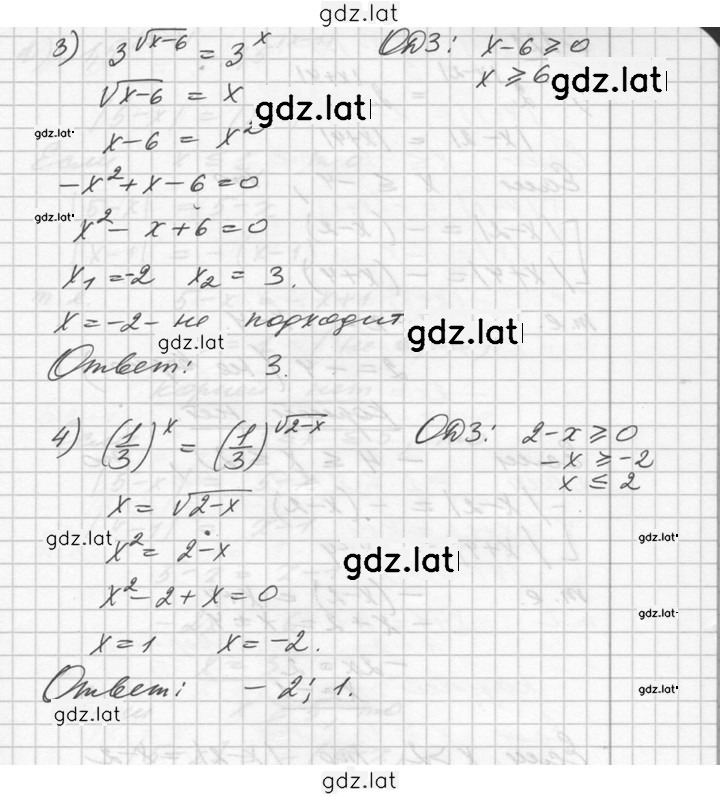 gdz.lat
3) 3^√(x-6) = 3^x ОДЗ: x-6 ≥ 0
√(x-6) = x x ≥ 6 gdz.lat
gdz.lat
gdz.lat x-6 = x²
-x²+x-6=0
gdz.lat x²- x+6=0
x₁=-2 x₂= 3.
x=-2- не подходит
gdz.lat gdz.lat
Ответ: 3.
4) (1/3)^x = (1/3)^√(2-x) ОДЗ: 2-x ≥ 0
-x ≥ -2
x ≤ 2
x = √(2-x)
gdz.lat x² = 2-x gdz.lat
gdz.lat
x²-2+x=0
gdz.lat
x=1 x=-2.
Ответ: -2; 1.
gdz.lat gdz.lat
gdz.lat